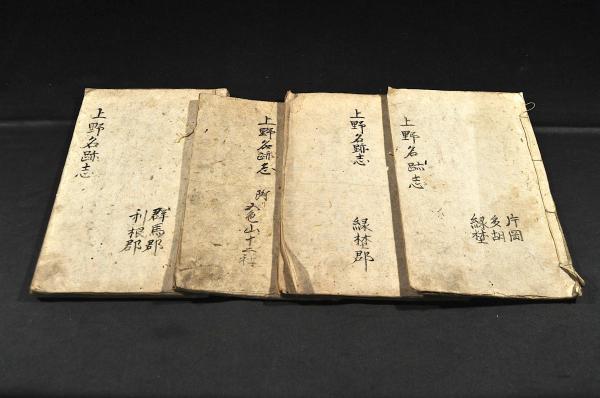 上野名跡志
群馬郡
利根郡
上野名跡志
附
山十二
上野名跡志
緑埜郡
上野名跡志
片岡
多胡
緑埜